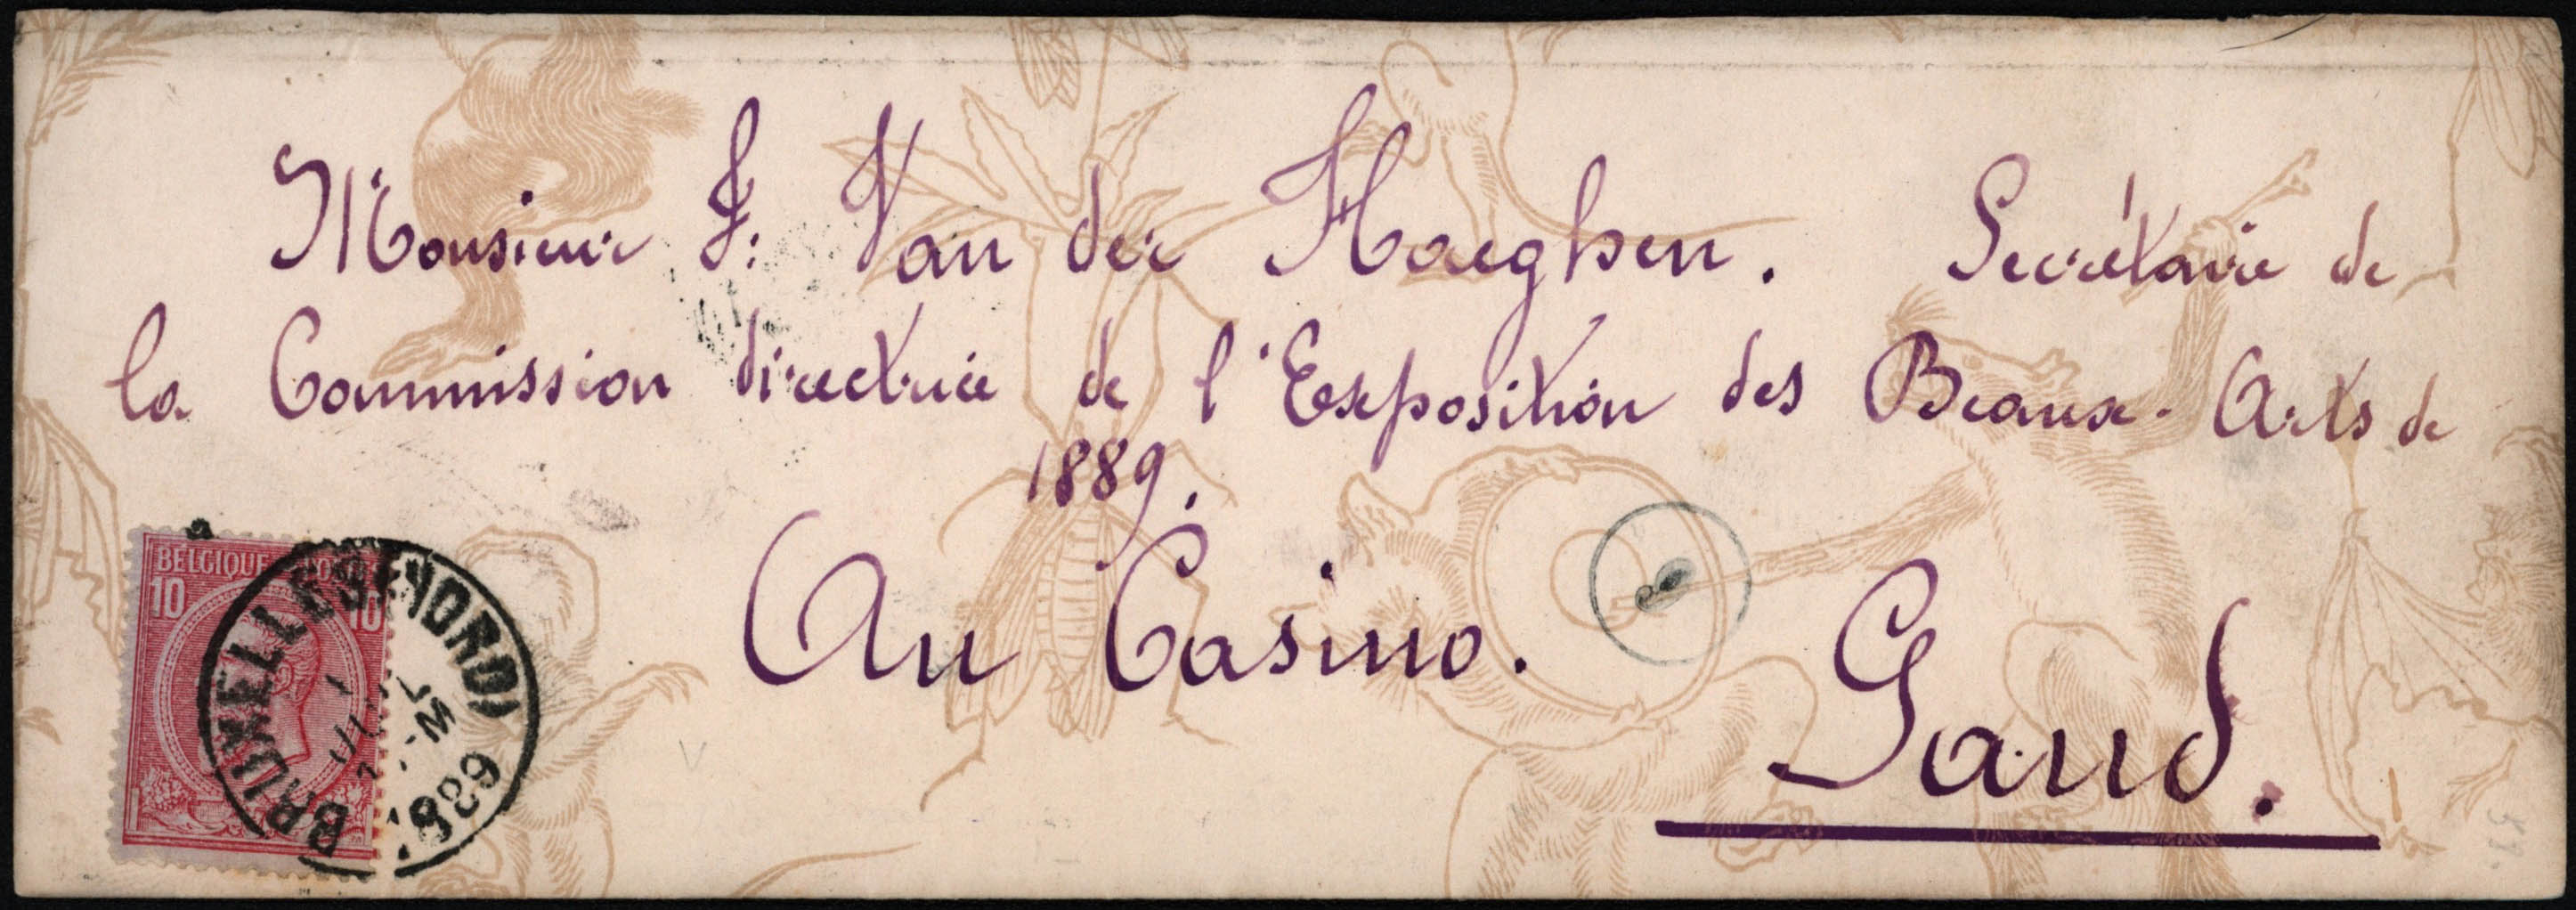 Monsieur F: Van der Haeghen. Secrétaire de
la Commission directrice de l'Exposition des Beaux-Arts de
1889.
Au Casino.
Gand.
BELGIQUE POSTES
10 10
BRUXELLES (NORD)
1 JUIL
7 -M
1889